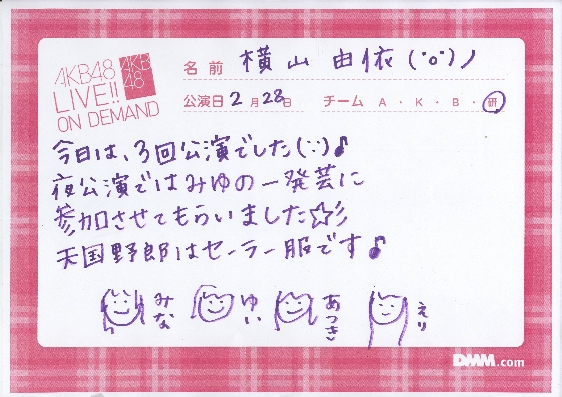 AKB48
LIVE!!
ON DEMAND
AKB
48
名前 横山 由依(˙o˙)ノ
公演日 2月28日 チーム A・K・B・研
今日は、3回公演でした(:·)♪
夜公演ではみゆの一発芸に
参加させてもらいました☆彡
天国野郎はセーラー服です♪
みな ゆい あつき えり
DMM.com